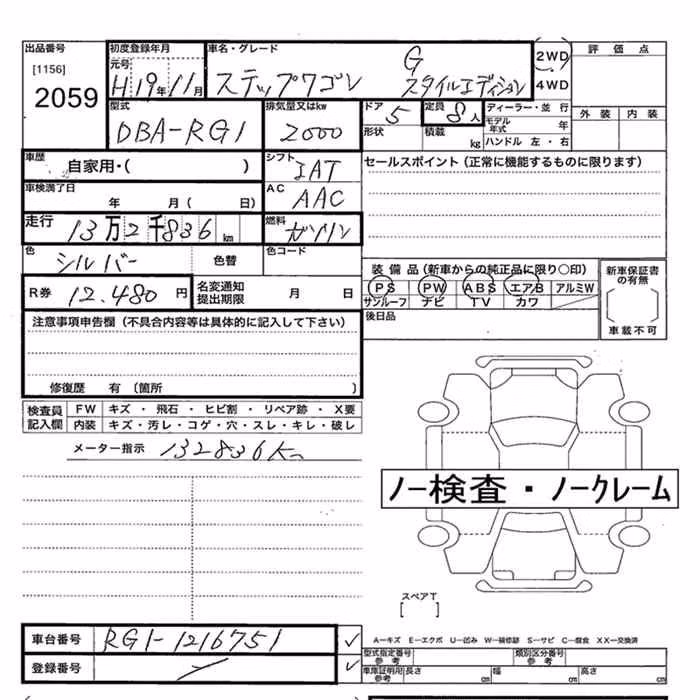 出品番号 初度登録年月 車名・グレード 2WD 評価点
[1156] 元号 G
2059 H19年11月 ステップワゴン スタイルエディション 4WD
型式 排気量又はkw ドア 5 定員 8人 ディーラー・並行 外装 内装
DBA-RG1 2000 形状 積載 kg モデル年式 年
ハンドル 左・右
車歴 自家用・( ) シフト IAT セールスポイント(正常に機能するものに限ります)
車検満了日 年 月( 日) AC AAC
走行 13万2千836km 燃料 ガソリン
色 シルバー 色替 色コード
装備品(新車からの純正品に限り○印) 新車保証書の有無
R券 12,480円 名変通知提出期限 月 日 PS PW ABS エアB アルミW
サンルーフ ナビ TV カワ 車載不可
注意事項申告欄(不具合内容等は具体的に記入して下さい) 後日品
修復歴 有(箇所 )
検査員記入欄 FW キズ・飛石・ヒビ割・リペア跡・X要
内装 キズ・汚レ・コゲ・穴・スレ・キレ・破レ
メーター指示 132836Km
ノー検査・ノークレーム
スペアT
[ ]
車台番号 RG1-1216751 ✓ A-キズ E-エクボ U-凹み W-補修跡 S-サビ C-腐食 XX-交換済
型式指定番号 参考 類別区分番号 参考
登録番号 ✓ 車庫証明用 参考 長さ cm 幅 cm 高さ cm